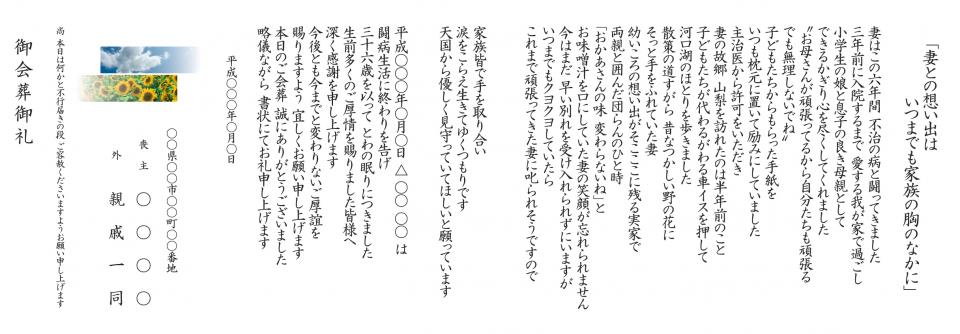 「妻との想い出は
いつまでも家族の胸のなかに」
妻はこの六年間 不治の病と闘ってきました
三年前に入院するまで 愛する我が家で過ごし
小学生の娘と息子の良き母親として
できるかぎり心を尽くしてくれました
〝お母さんが頑張ってるから自分たちも頑張る
でも無理しないでね〟
子どもたちからもらった手紙を
いつも枕元に置いて励みにしていました
主治医から許可をいただき
妻の故郷 山梨を訪れたのは半年前のこと
子どもたちが代わるがわる車イスを押して
河口湖のほとりを歩きました
散策の道すがら 昔なつかしい野の花に
そっと手をふれていた妻
幼いころの想い出がそこここに残る実家で
両親と囲んだ団らんのひと時
「おかあさんの味 変わらないね」と
お味噌汁を口にしていた妻の笑顔が忘れられません
今はまだ 早い別れを受け入れられずにいますが
いつまでもクヨクヨしていたら
これまで頑張ってきた妻に叱られそうですので
家族皆で手を取り合い
涙をこらえ生きてゆくつもりです
天国から優しく見守っていてほしいと願っています
平成〇〇〇年〇月〇日 △〇〇 〇〇 は
闘病生活に終わりを告げ
三十六歳を以って とわの眠りにつきました
生前多くのご厚情を賜りました皆様へ
深く感謝を申し上げます
今後とも今までと変わりないご厚誼を
賜りますよう 宜しくお願い申し上げます
本日のご会葬 誠にありがとうございました
略儀ながら 書状にてお礼申し上げます
平成〇〇〇年〇月〇日
〇〇県〇〇市〇〇町〇〇番地
喪主 〇〇〇〇
外 親戚一同
尚 本日は何かと不行届きの段 ご容赦くださいますようお願い申し上げます
御会葬御礼